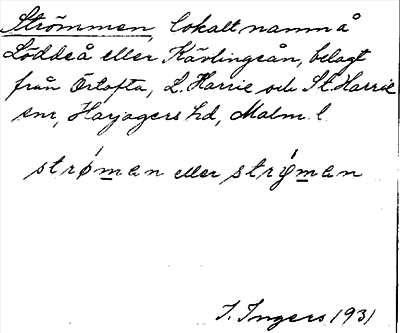 Strömmen, lokalt namn å
Löddeå eller Kävlingeån, belagt
från Örtofta, L. Harrie och St. Harrie
snr, Harjagers hd, Malm. l.
strøman eller strýman
I. Ingers 1931